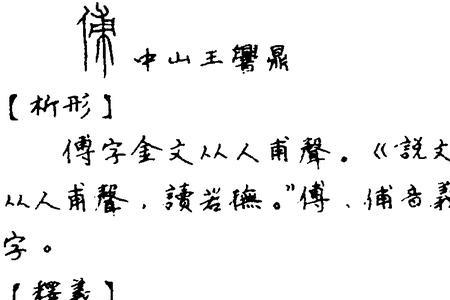 中山王鼎
【析形】
傅字金文从人甫聲。《説文
从人甫聲，讀若撫。”傅、俌音義
字。
【釋義】